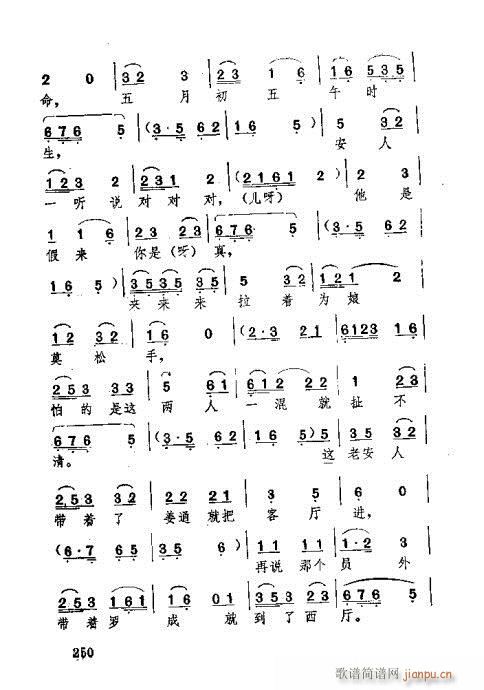 2 0 | 3 2 3 | 2 3 1 6 | 1 6 5 3 5 |
命， 五 月 初 五 午 时
6 7 6 5 | (3·5 6 2 | 1 6 5) | 5 3 2 |
生， 安 人
1 2 3 2 | 2 3 1 2 | (2 1 6 1 2) | 2 3 |
一 听 说 对 对 对，(儿呀) 他 是
1 1 6 | 2 3 2 | 6 7 6 5 | (3·5 6 2 |
假 来 你是(呀)真，
1 6 5) | 3 5 3 5 | 5 3 2 | 1 2 1 2 |
夹 来 来 拉 着 为 娘
1 2 3 2 | 1 6 0 | (2·3 2 1 | 6 1 2 3 1 6) |
莫 松 手，
2 5 3 3 2 | 5 6 1 | 6 1 2 2 2 | 1 2 3 |
怕 的 是这 两 人 一 混 就 扯 不
6 7 6 5 | (3·5 6 2 | 1 6 5) 5 | 3 5 3 2 |
清。 这 老 安 人
2 5 3 3 2 | 2 2 2 1 | 6 5 | 6 0 |
带 着 了 姜 通 就 把 客 厅 进，
(6·7 6 5 | 3 5 6) | 1 1 1 1 | 1·2 3 |
再 说 那 个 员 外
2 5 3 1 6 1 | 1 6 1 2 | 3 5 3 2 3 | 6 7 6 5 |
带 着 罗 成 就 到 了 西 厅。
250
歌谱简谱网
jianpu.cn